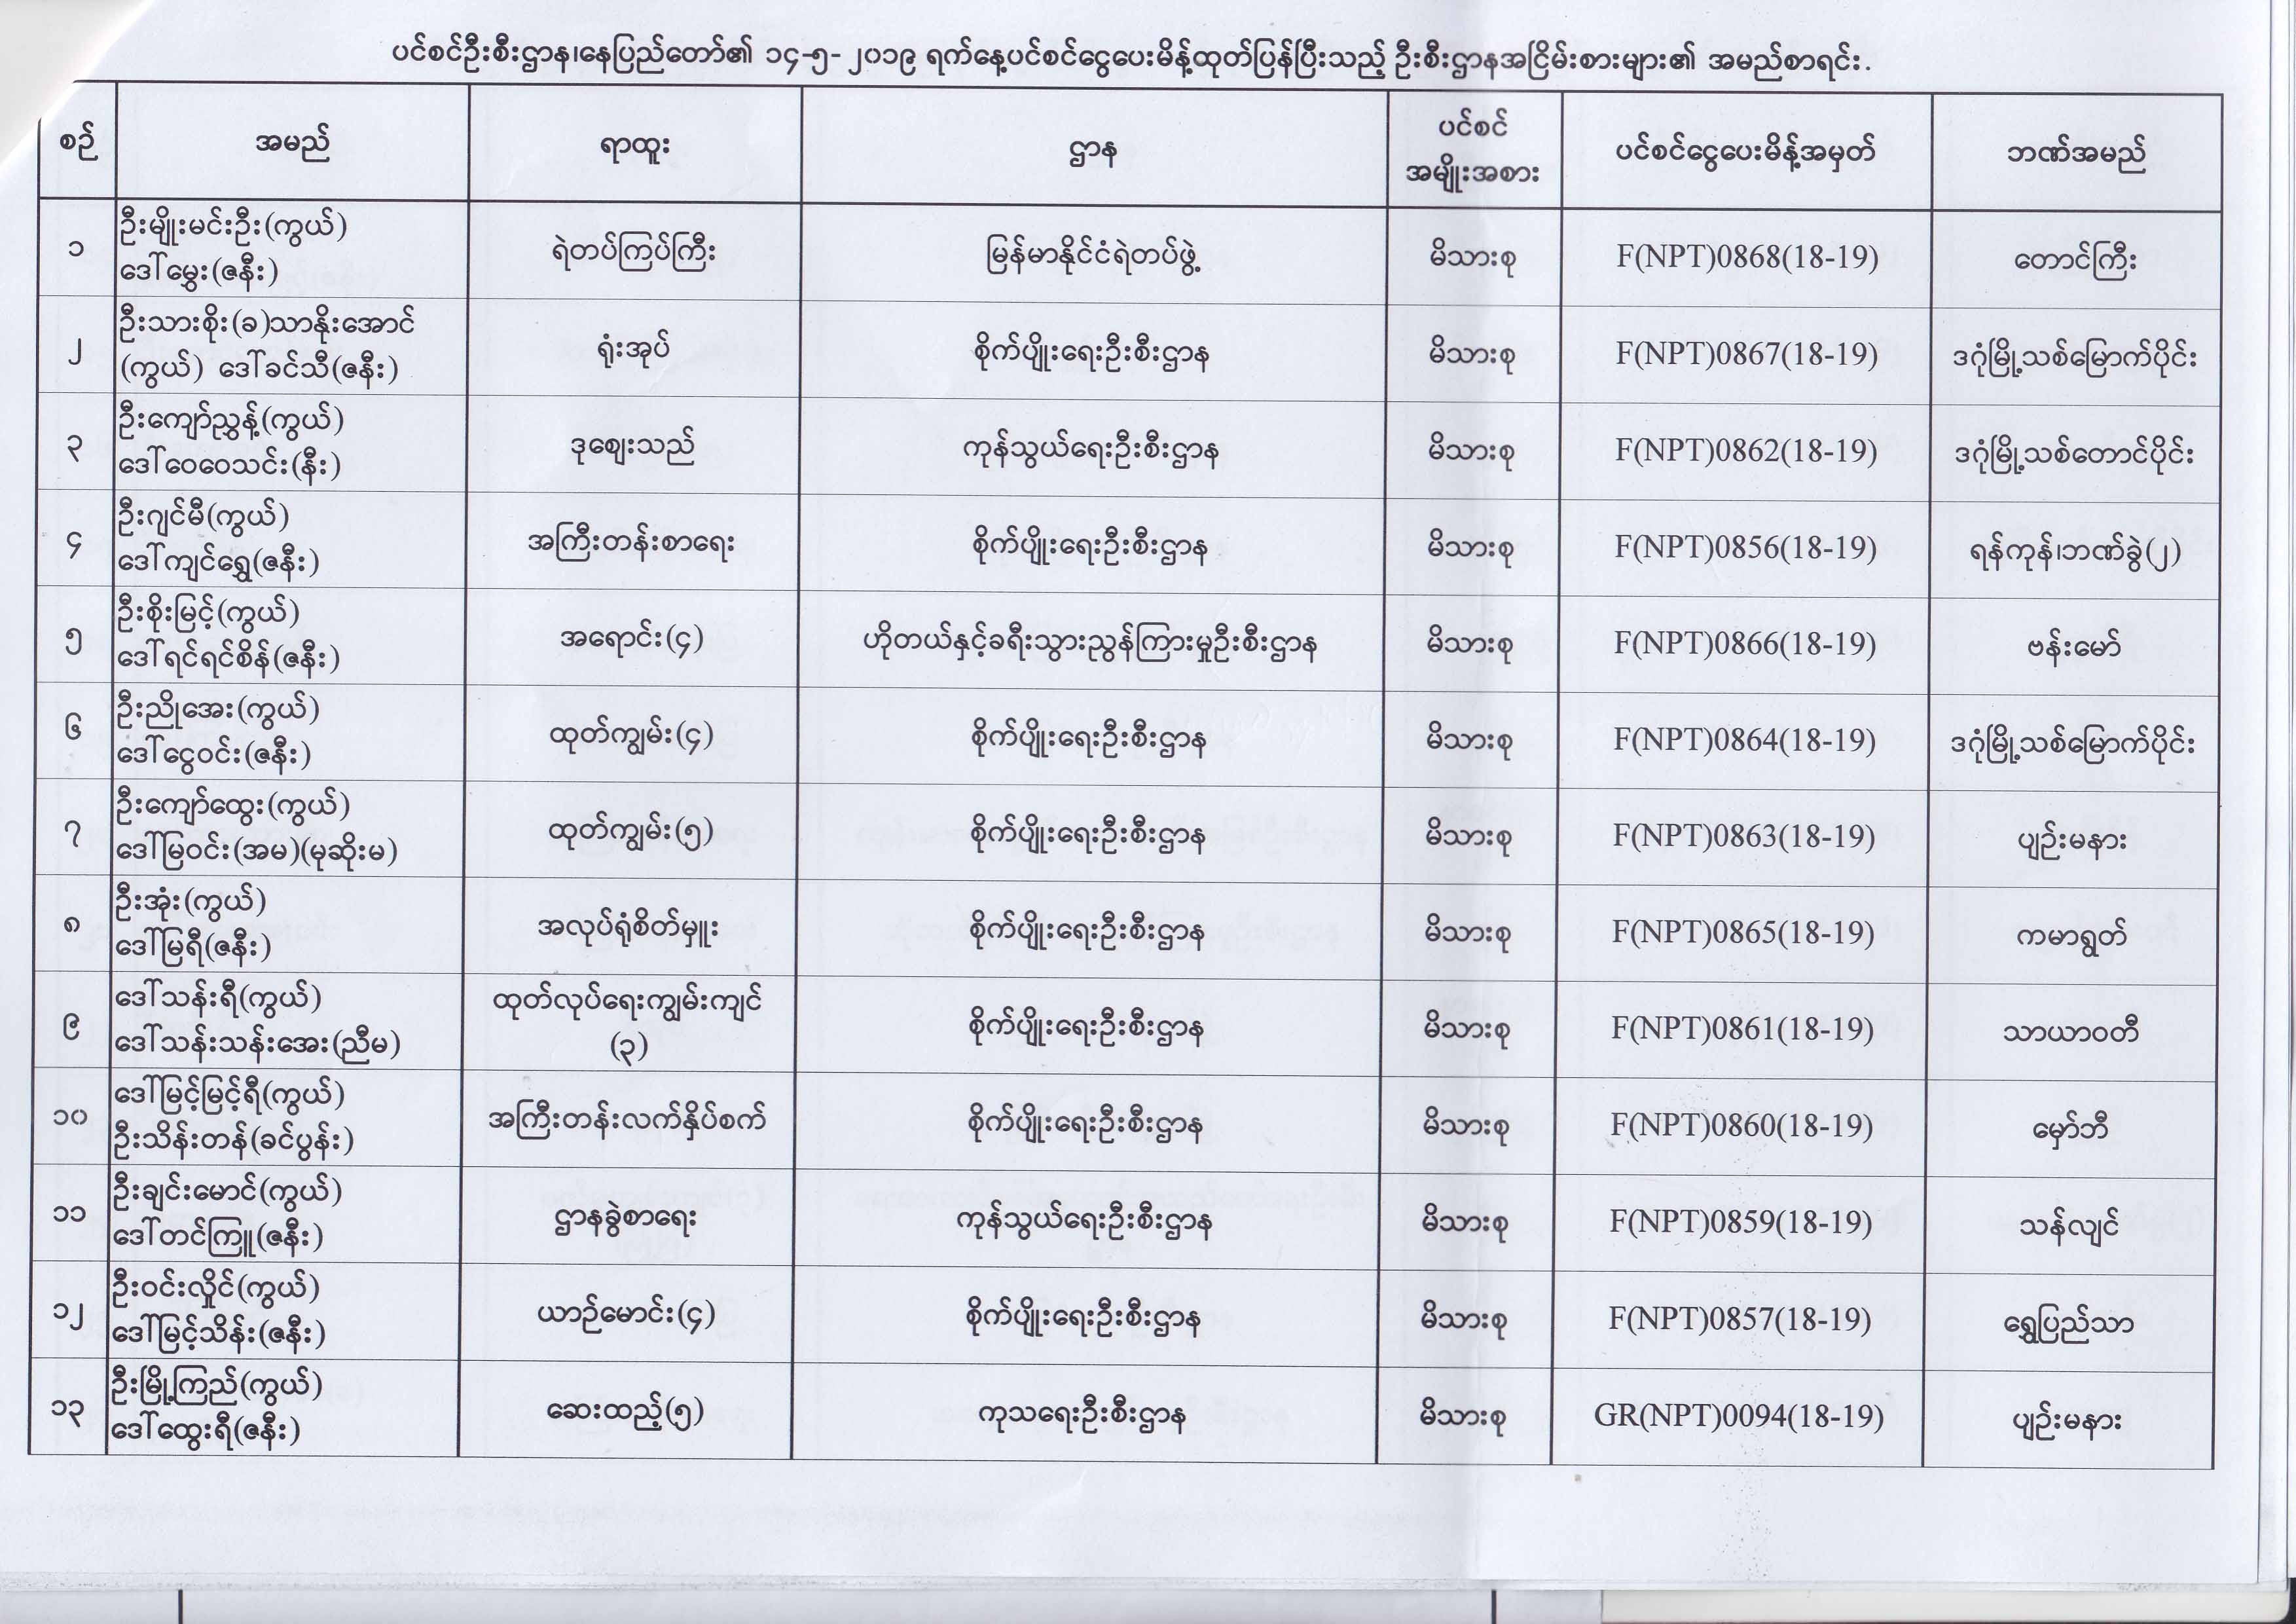 ပင်စင်ဦးစီးဌာန၊နေပြည်တော်၏ ၁၄-၅-၂၀၁၉ ရက်နေ့ပင်စင်ငွေပေးမိန့်ထုတ်ပြန်ပြီးသည့် ဦးစီးဌာနအငြိမ်းစားများ၏ အမည်စာရင်း.
စဉ် အမည် ရာထူး ဌာန ပင်စင် အမျိုးအစား ပင်စင်ငွေပေးမိန့်အမှတ် ဘဏ်အမည်
၁ ဦးမျိုးမင်းဦး(ကွယ်) ရဲတပ်ကြပ်ကြီး မြန်မာနိုင်ငံရဲတပ်ဖွဲ့ မိသားစု F(NPT)0868(18-19) တောင်ကြီး
ဒေါ်မွှေး(ဇနီး)
၂ ဦးသားစိုး(ခ)သာနိုးအောင် ရုံးအုပ် စိုက်ပျိုးရေးဦးစီးဌာန မိသားစု F(NPT)0867(18-19) ဒဂုံမြို့သစ်မြောက်ပိုင်း
(ကွယ်) ဒေါ်ခင်သီ(ဇနီး)
၃ ဦးကျော်ညွှန့်(ကွယ်) ဒုဈေးသည် ကုန်သွယ်ရေးဦးစီးဌာန မိသားစု F(NPT)0862(18-19) ဒဂုံမြို့သစ်တောင်ပိုင်း
ဒေါ်ဝေဝေသင်း(နီး)
၄ ဦးဂျင်မီ(ကွယ်) အကြီးတန်းစာရေး စိုက်ပျိုးရေးဦးစီးဌာန မိသားစု F(NPT)0856(18-19) ရန်ကုန်၊ဘဏ်ခွဲ(၂)
ဒေါ်ကျင်ရွှေ(ဇနီး)
၅ ဦးစိုးမြင့်(ကွယ်) အရောင်း(၄) ဟိုတယ်နှင့်ခရီးသွားညွန်ကြားမှုဦးစီးဌာန မိသားစု F(NPT)0866(18-19) ဗန်းမော်
ဒေါ်ရင်ရင်စိန်(ဇနီး)
၆ ဦးညိုအေး(ကွယ်) ထုတ်ကျွမ်း(၄) စိုက်ပျိုးရေးဦးစီးဌာန မိသားစု F(NPT)0864(18-19) ဒဂုံမြို့သစ်မြောက်ပိုင်း
ဒေါ်ငွေဝင်း(ဇနီး)
၇ ဦးကျော်ထွေး(ကွယ်) ထုတ်ကျွမ်း(၅) စိုက်ပျိုးရေးဦးစီးဌာန မိသားစု F(NPT)0863(18-19) ပျဉ်းမနား
ဒေါ်မြဝင်း(အမ)(မုဆိုးမ)
၈ ဦးအုံး(ကွယ်) အလုပ်ရုံစိတ်မှူး စိုက်ပျိုးရေးဦးစီးဌာန မိသားစု F(NPT)0865(18-19) ကမာရွတ်
ဒေါ်မြရီ(ဇနီး)
၉ ဒေါ်သန်းရီ(ကွယ်) ထုတ်လုပ်ရေးကျွမ်းကျင် (၃) စိုက်ပျိုးရေးဦးစီးဌာန မိသားစု F(NPT)0861(18-19) သာယာဝတီ
ဒေါ်သန်းသန်းအေး(ညီမ)
၁၀ ဒေါ်မြင့်မြင့်ရီ(ကွယ်) အကြီးတန်းလက်နှိပ်စက် စိုက်ပျိုးရေးဦးစီးဌာန မိသားစု F(NPT)0860(18-19) မှော်ဘီ
ဦးသိန်းတန်(ခင်ပွန်း)
၁၁ ဦးချင်းမောင်(ကွယ်) ဌာနခွဲစာရေး ကုန်သွယ်ရေးဦးစီးဌာန မိသားစု F(NPT)0859(18-19) သန်လျင်
ဒေါ်တင်ကြူ(ဇနီး)
၁၂ ဦးဝင်းလှိုင်(ကွယ်) ယာဉ်မောင်း(၄) စိုက်ပျိုးရေးဦးစီးဌာန မိသားစု F(NPT)0857(18-19) ရွှေပြည်သာ
ဒေါ်မြင့်သိန်း(ဇနီး)
၁၃ ဦးမြို့ကြည်(ကွယ်) ဆေးထည့်(၅) ကုသရေးဦးစီးဌာန မိသားစု GR(NPT)0094(18-19) ပျဉ်းမနား
ဒေါ်ထွေးရီ(ဇနီး)